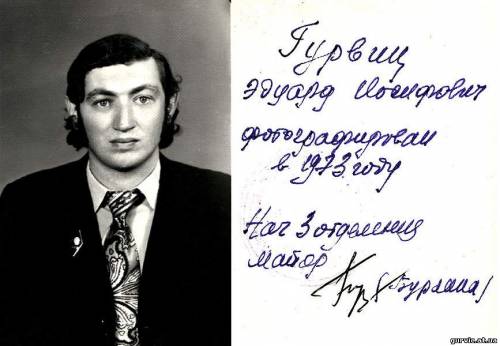 Гурвиц
Эдуард Иосифович
фотографирован
в 1973 году
Нач 3 отделения
майор
gurvic.at.ua